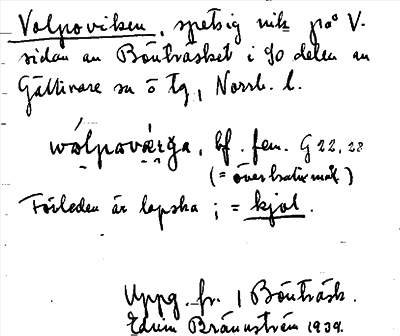 Valpoviken, spetsig vik på V-
sidan av Bönträsket i SO delen av
Gällivare sn o tg, Norrb. l.
wálpovær̃ga, bf. fem. G 22, 28
(= överkalixmål)
Förleden är lapska ; = kjol.
Uppg. fr. 1 Bönträsk.
Edvin Brännström 1939.